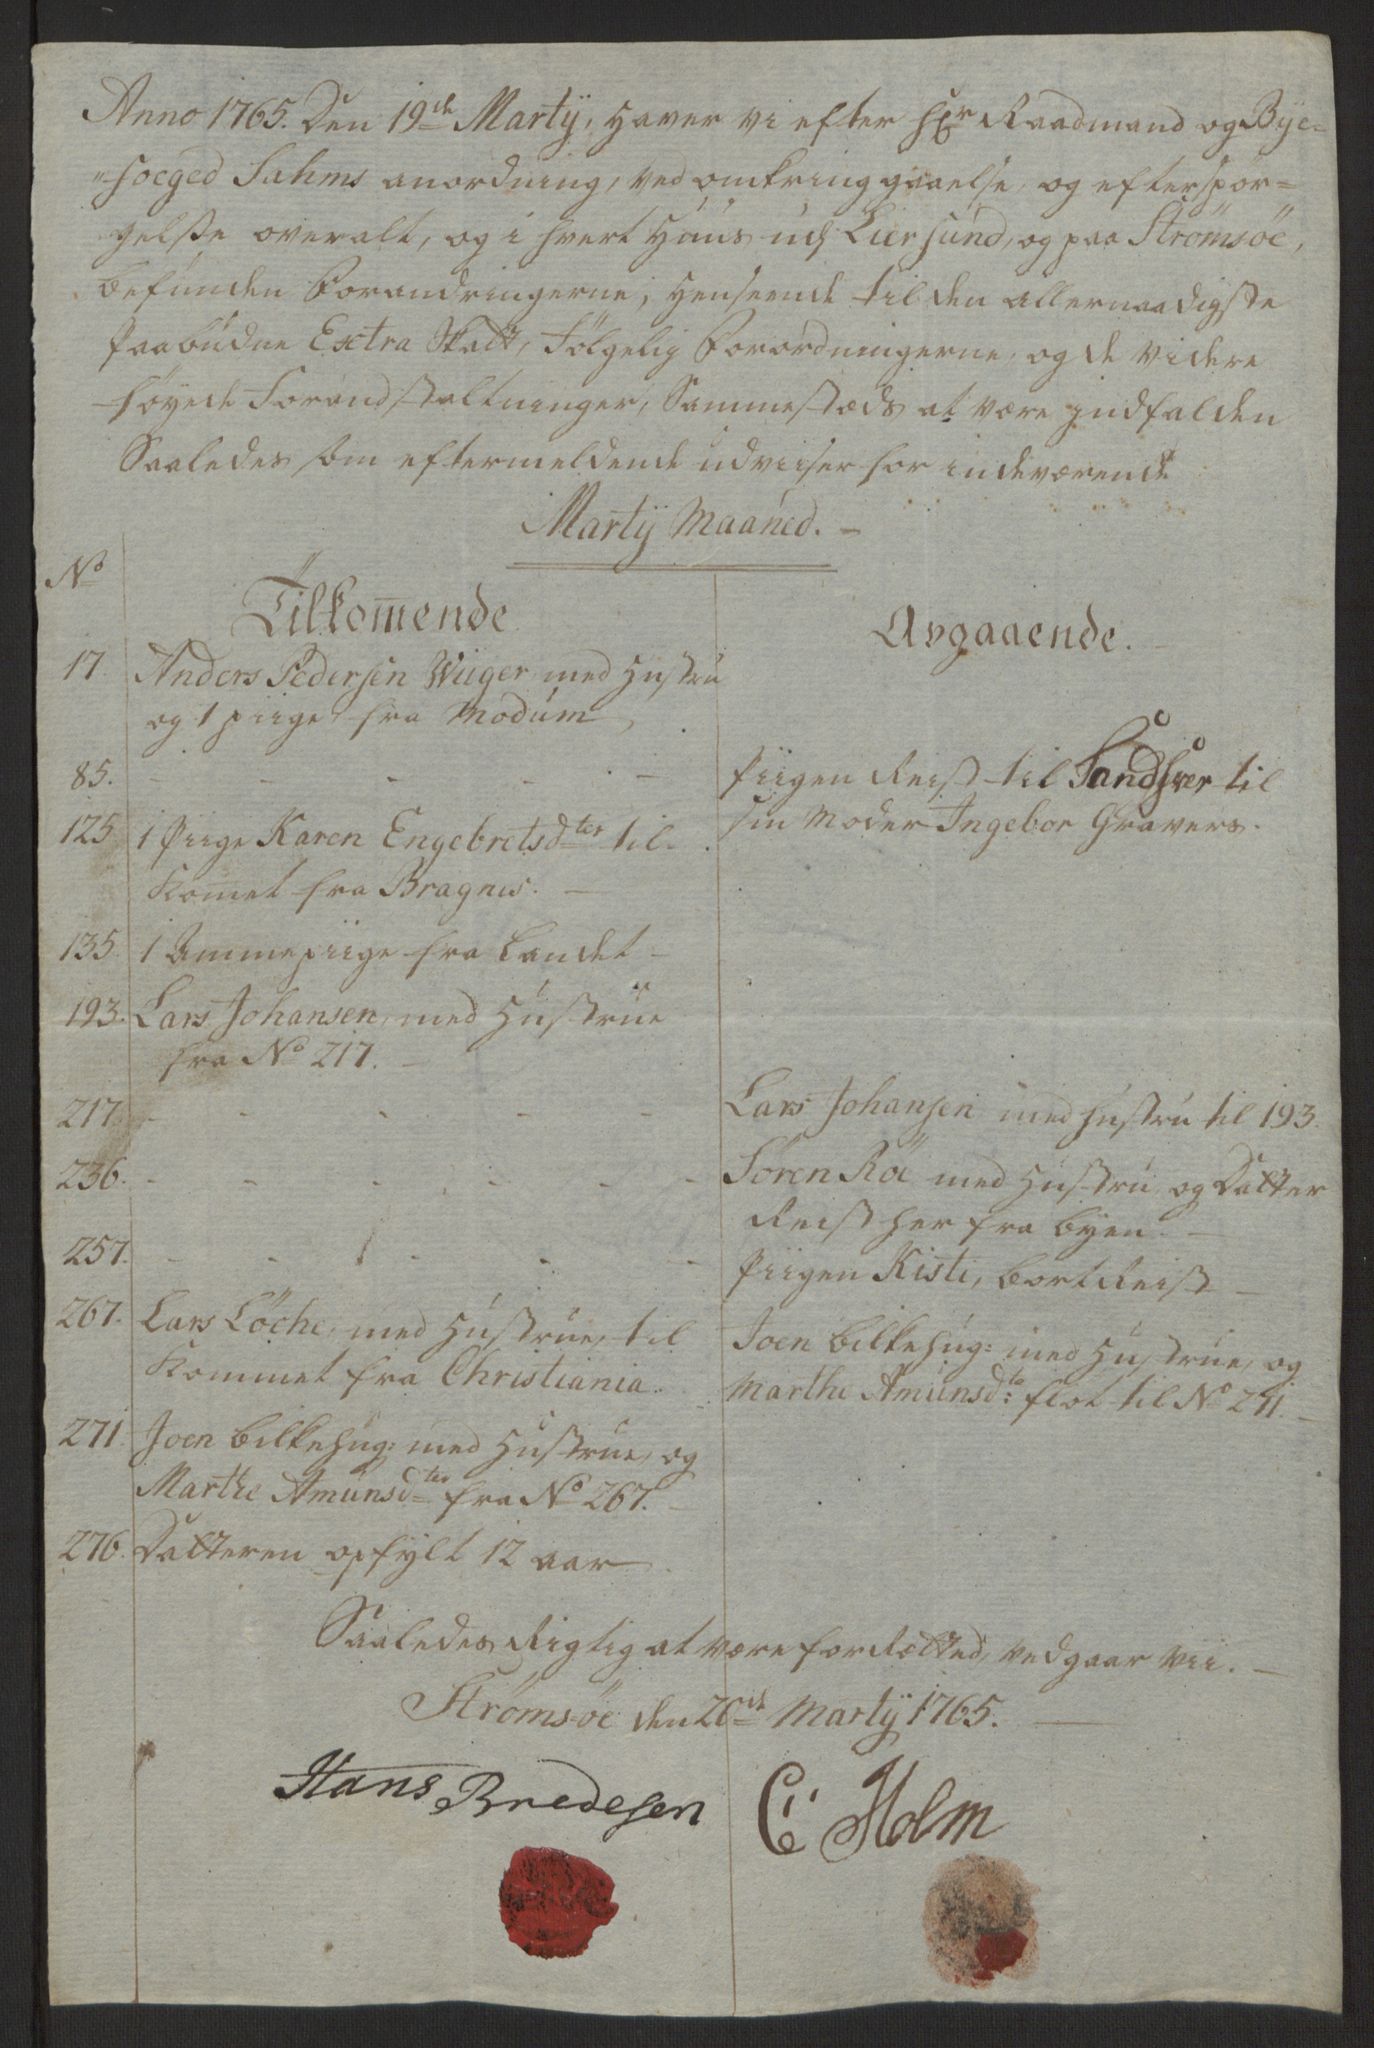 Anno 1765. Den 19de Martÿ, haver vi efter Hr Raadmand og Bye-
foeged Sahms anordning, ved omkringgaaelse, og efterspör=
gelße overalt, og i hvert Huus udj Liersund, og paa Strömsöe,
befunden Forandringerne, henseende til den allernaadigste
Paabudne Extra Skatt, Fölgelig Forordningerne, og de videre
föyede Foranstaltninger, Sammestæds at være indfalden
Saaledes som eftermeldende udviiser for indeværende
Martÿ Maaned.
No
Tilkommende
Avgaaende.
17. Anders Pedersen Wiiger med Hustru
og 1 piige fra Modum
85. - - - - - Piigen Reist til Sandsver til
sin Moder Ingebor Gravers.
125 1 Piige Karen Engebretsdter til
Komet fra Bragnis.
135. 1 Ammepiige fra Landet
193. Lars Johansen, med Hustrue
fra No 217.
217. - - - - - Lars Johansen med hustru til 193.
236. - - - - - - Sören Röe med Hustru og Datter
Reist her fra byen.
257. - - - - - Piigen Kisti, bortReist
267. Lars Löche, med Hustrue, til
Kommet fra Christiania.
Joen bilkehug: med Hustrue, og
Marthe Amunsdtr: flöt til No 271.
271. Joen bilkehug: med Hustrue, og
Marthe Amunsdter fra No 267.
276. Datteren opfylt 12 aar
Saaledes Rigtig at være forRetted, vedgaar vii.
Strömsöe den 20de Martÿ 1765.
Hans Bredesen
C Holm